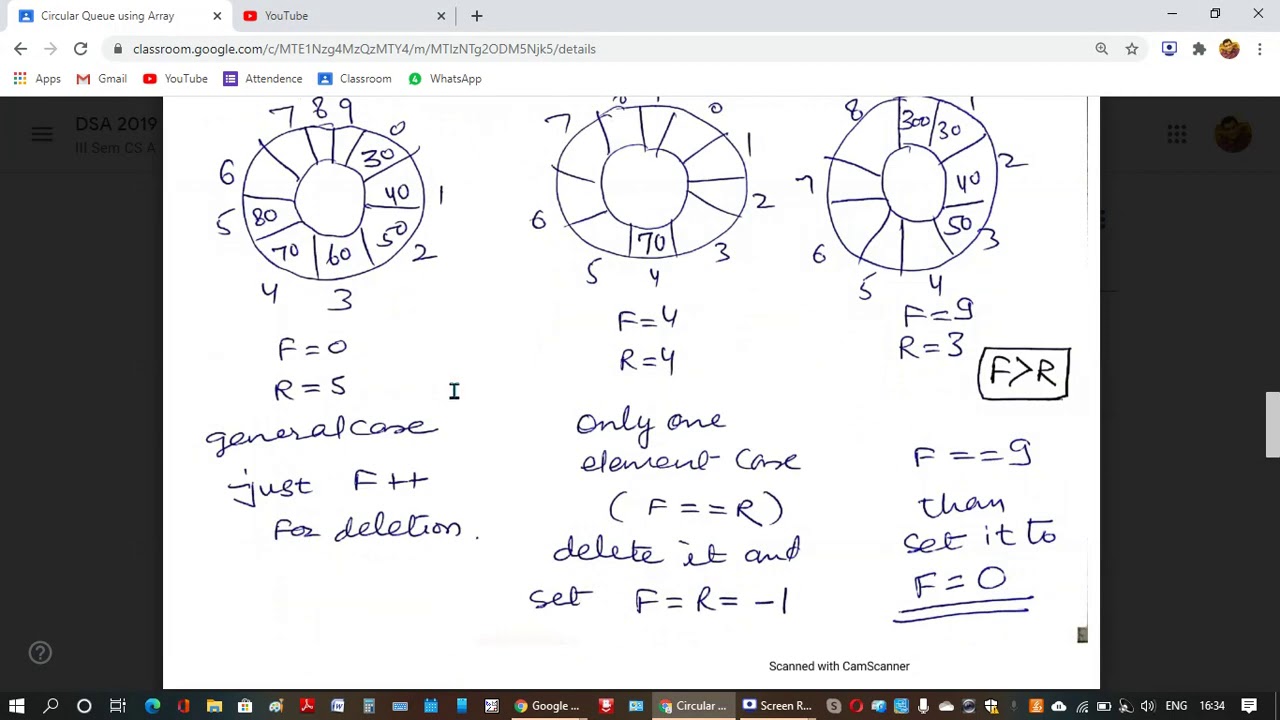 Circular Queue using Array
YouTube
classroom.google.com/c/MTE1Nzg4MzQzMTY4/m/MTIzNTg2ODM5Njk5/details
Apps Gmail YouTube Attendence Classroom WhatsApp
DSA 2019
III Sem CS A
7 8 9 0 1 2 3 4 5 6
30 40 50 60 70 80
F = 0
R = 5
general case
just F++
For deletion.
7 0 1 2 3 4 5 6
70
F = 4
R = 4
Only one
element case
( F == R )
delete it and
set F = R = -1
8 1 2 3 4 5 6 7
300 30 40 50
F = 9
R = 3
F > R
F == 9
than
set it to
F = 0
Scanned with CamScanner
Google ...
Circular ...
Screen R...
ENG 16:34